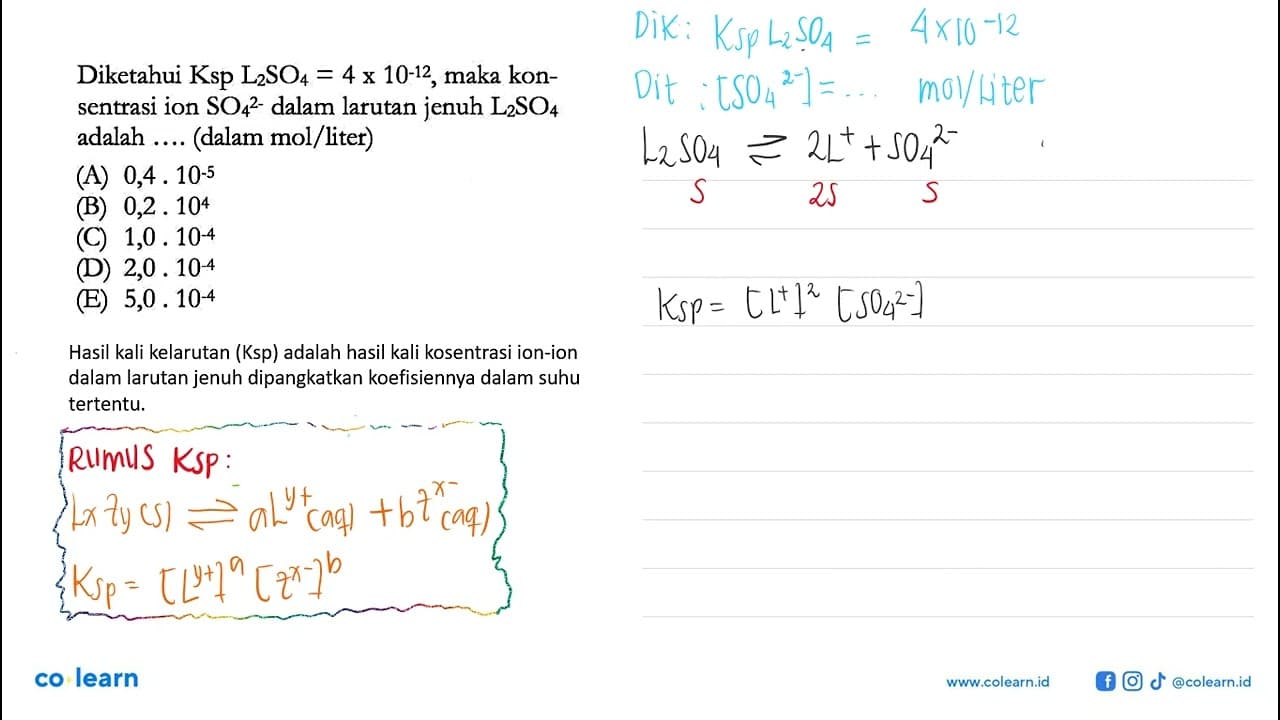 Diketahui Ksp L₂SO₄ = 4 x 10⁻¹², maka kon-
sentrasi ion SO₄²⁻ dalam larutan jenuh L₂SO₄
adalah .... (dalam mol/liter)
(A) 0,4 . 10⁻⁵
(B) 0,2 . 10⁴
(C) 1,0 . 10⁻⁴
(D) 2,0 . 10⁻⁴
(E) 5,0 . 10⁻⁴
Hasil kali kelarutan (Ksp) adalah hasil kali kosentrasi ion-ion
dalam larutan jenuh dipangkatkan koefisiennya dalam suhu
tertentu.
RUMUS KSP :
LxZy (s) ⇌ aL^y+ (aq) + bZ^x- (aq)
Ksp = [L^y+]^a [Z^x-]^b
Dik : Ksp L₂SO₄ = 4 × 10⁻¹²
Dit : [SO₄²⁻] = ... mol/Liter
L₂SO₄ ⇌ 2L⁺ + SO₄²⁻
S 2S S
Ksp = [L⁺]² [SO₄²⁻]
co learn
www.colearn.id @colearn.id